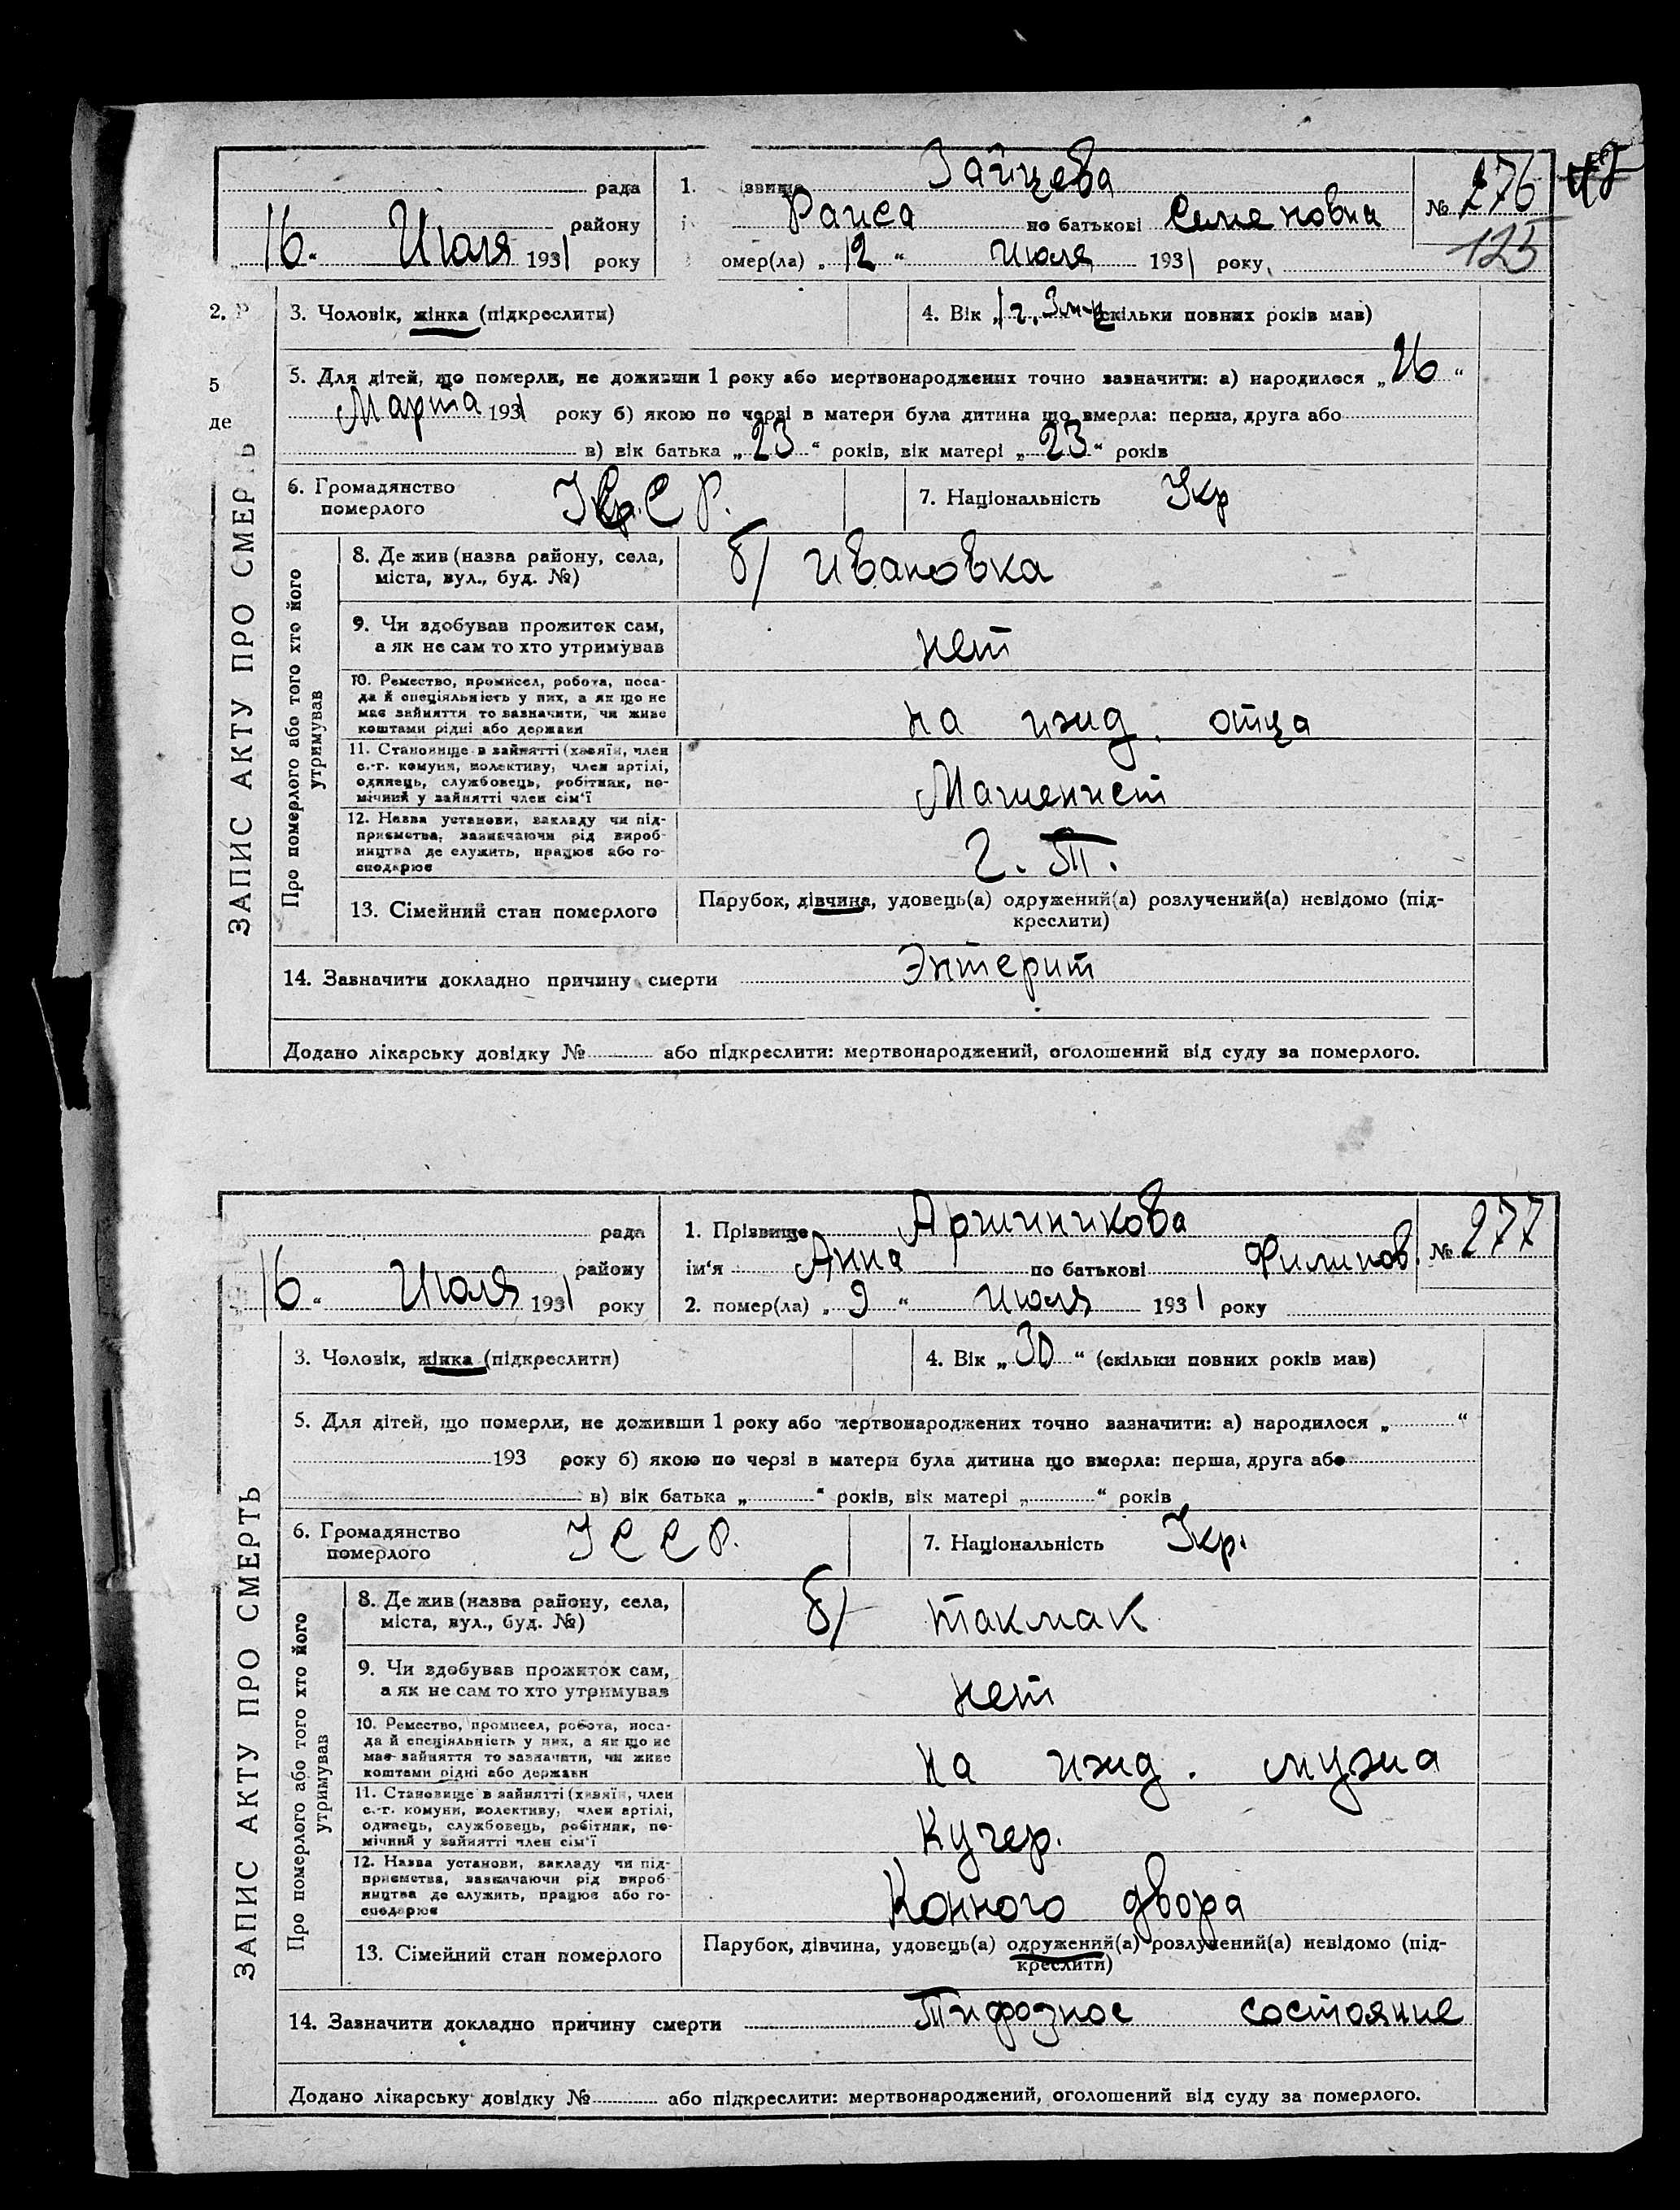 42
рада
району
16. Июля 1931 року
1. ізвище Зайцева
і Раиса по батькові Семеновна
омер(ла) „12“ июля 1931 року,
№ 276
125
2. Р
3. Чоловік, жінка (підкреслити)
4. Вік „1 г. 3 м-ц скільки повних років мав)
5
де
5. Для дітей, що померли, не доживши 1 року або мертвонароджених точно зазначити: а) народилося „26“
Марта 1931 року б) якою по черзі в матери була дитина що вмерла: перша, друга або
в) вік батька „23“ років, вік матері „23“ років
6. Громадянство
померлого
7. Національність Укр
ЗАПИС АКТУ ПРО СМЕРТЬ
Про померлого або того хто його
утримував
8. Де жив (назва району, села,
міста, вул., буд. №)
б/ ивановка
9. Чи здобував прожиток сам,
а як не сам то хто утримував
нет
10. Ремество, промисел, робота, поса-
да й спеціяльність у них, а як що не
має зайняття то зазначити, чи живе
коштами рідні або держави
на ижд. отца
11. Становище в зайнятті (хазяїн, член
с.-г. комуни, колективу, член артілі,
одинець, службовець, робітник, по-
мічний у зайнятті член сім'ї
Машенист
12. Назва установи, закладу чи під-
приємства, зазначаючи рід вироб-
ництва де служить, працює або го-
сподарює
Г. Т.
13. Сімейний стан померлого
Парубок, дівчина, удовець(а) одружений(а) розлучений(а) невідомо (під-
креслити)
14. Зазначити докладно причину смерти Энтерит
Додано лікарську довідку № або підкреслити: мертвонароджений, оголошений від суду за померлого.
рада
району
16. Июля 1931 року
1. Прізвище Аршинникова
ім'я Анна по батькові Филипов.
2. помер(ла) „9“ июля 1931 року
№ 277
3. Чоловік, жінка (підкреслити)
4. Вік „30“ (скільки повних років мав)
5. Для дітей, що померли, не доживши 1 року або мертвонароджених точно зазначити: а) народилося „ “
193 року б) якою по черзі в матери була дитина що вмерла: перша, друга або
в) вік батька „ “ років, вік матері „ “ років
6. Громадянство
померлого
УССР.
7. Національність Укр.
ЗАПИС АКТУ ПРО СМЕРТЬ
Про померлого або того хто його
утримував
8. Де жив (назва району, села,
міста, вул., буд. №)
б/ Токмак
9. Чи здобував прожиток сам,
а як не сам то хто утримував
нет
10. Ремество, промисел, робота, поса-
да й спеціяльність у них, а як що не
має зайняття то зазначити, чи живе
коштами рідні або держави
на ижд. мужа
11. Становище в зайнятті (хазяїн, член
с.-г. комуни, колективу, член артілі,
одинець, службовець, робітник, по-
мічний у зайнятті член сім'ї
Кучер.
12. Назва установи, закладу чи під-
приємства, зазначаючи рід вироб-
ництва де служить, працює або го-
сподарює
Конного двора
13. Сімейний стан померлого
Парубок, дівчина, удовець(а) одружений(а) розлучений(а) невідомо (під-
креслити)
14. Зазначити докладно причину смерти Тифозное состояние
Додано лікарську довідку № або підкреслити: мертвонароджений, оголошений від суду за померлого.